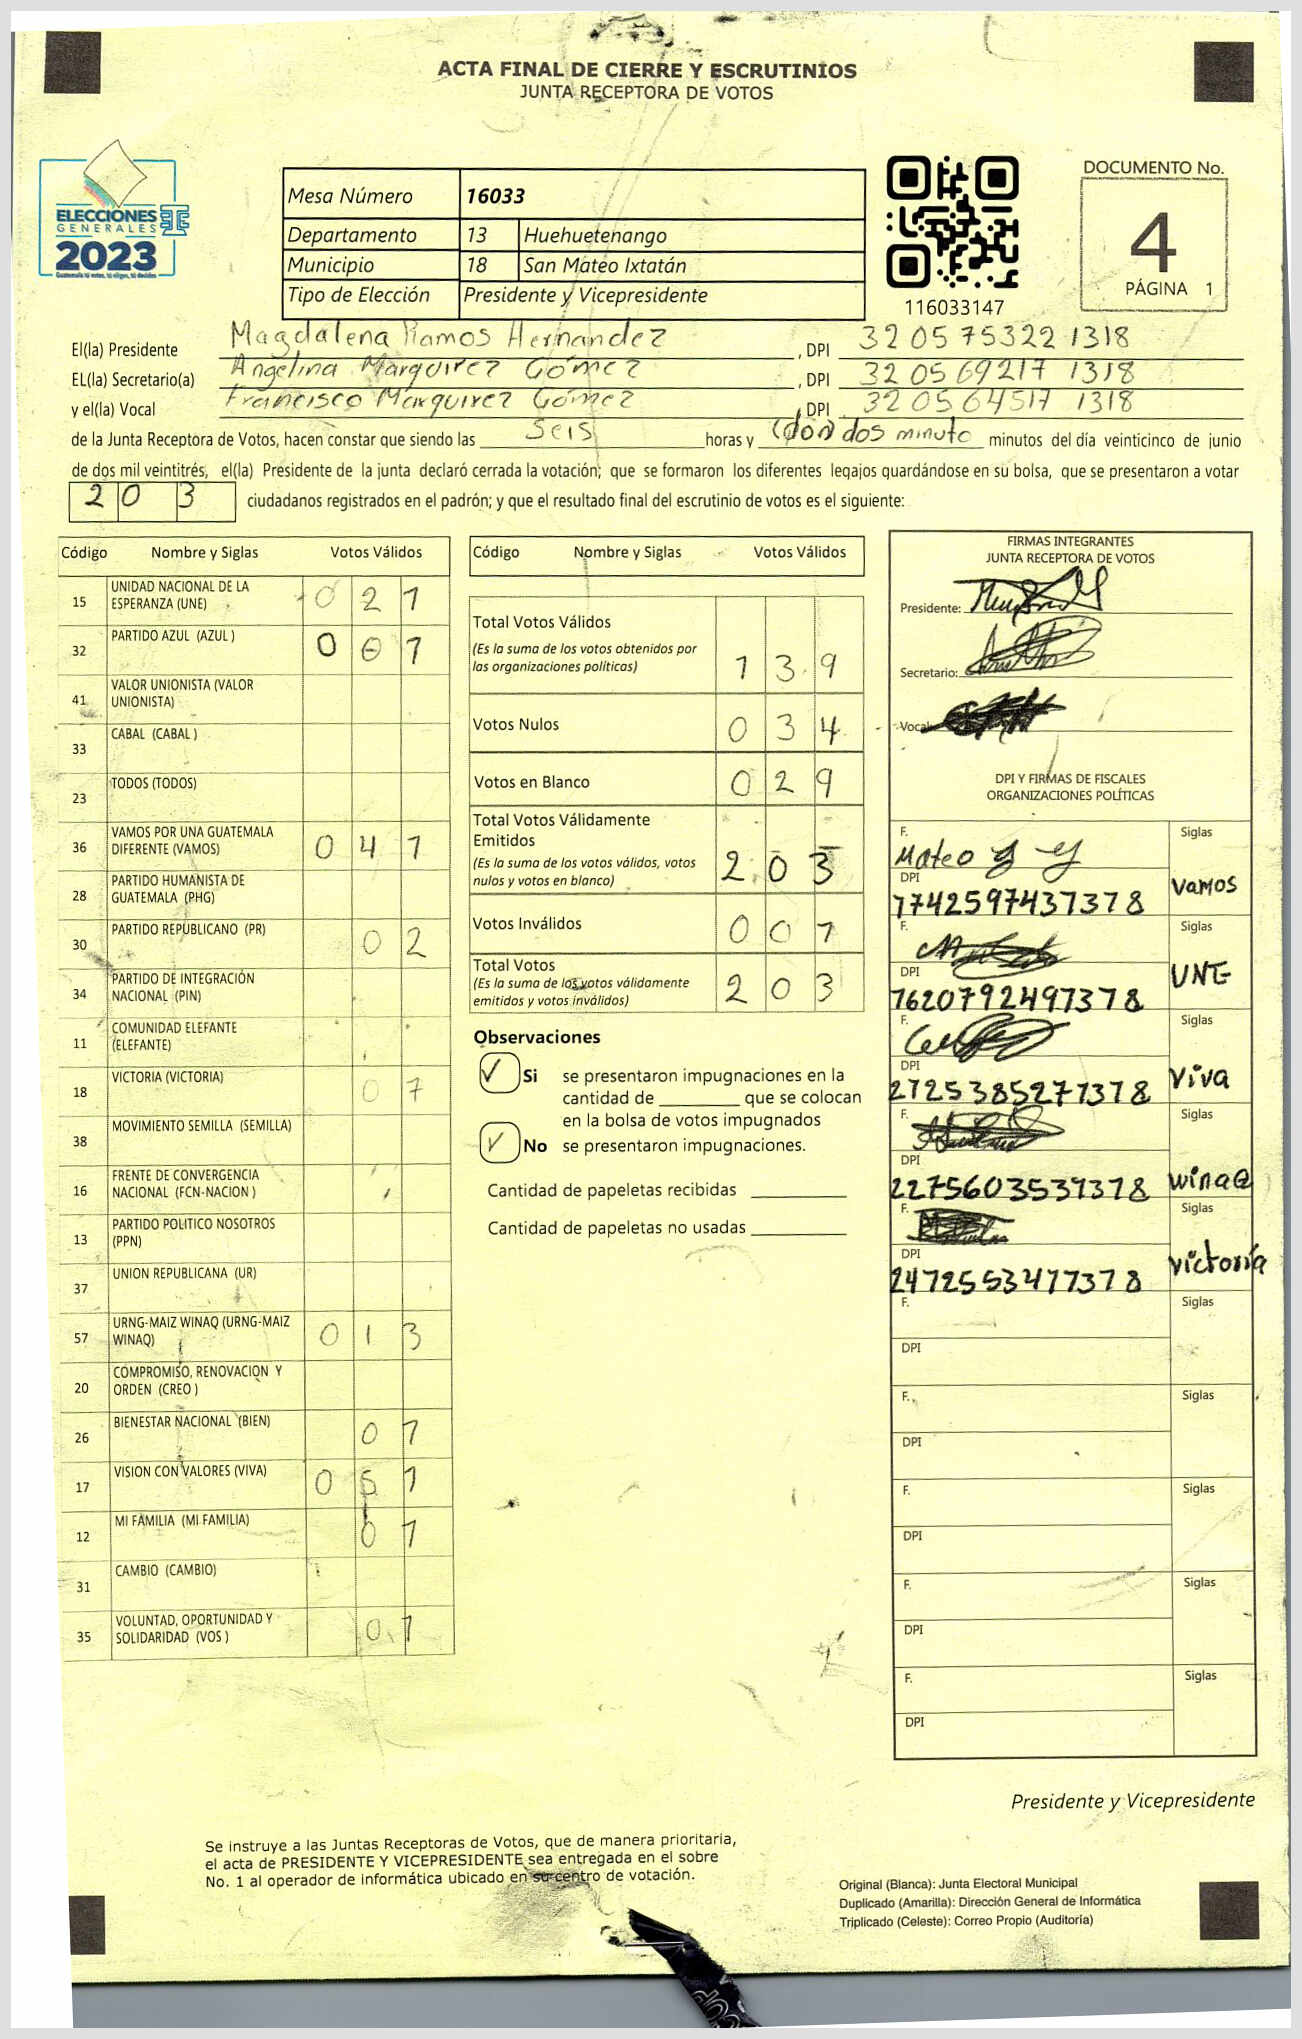 ACTA FINAL DE CIERRE Y ESCRUTINIOS
JUNTA RECEPTORA DE VOTOS
ELECCIONES
GENERALES
2023
Guatemala tú votas, tú eliges, tú decides
Mesa Número 16033
Departamento 13 Huehuetenango
Municipio 18 San Mateo Ixtatán
Tipo de Elección Presidente y Vicepresidente
116033147
DOCUMENTO No.
4
PÁGINA 1
El(la) Presidente Magdalena Ramos Hernandez, DPI 32 05 75322 1318
EL(la) Secretario(a) Angelina Marquirez Gómez, DPI 32 05 69217 1318
y el(la) Vocal Francisco Marquirez Gómez, DPI 32 05 64517 1318
de la Junta Receptora de Votos, hacen constar que siendo las Seis horas y (don) dos minuto minutos del día veinticinco de junio
de dos mil veintitrés, el(la) Presidente de la junta declaró cerrada la votación; que se formaron los diferentes legajos guardándose en su bolsa, que se presentaron a votar
2 0 3 ciudadanos registrados en el padrón; y que el resultado final del escrutinio de votos es el siguiente:
Código Nombre y Siglas Votos Válidos
15 UNIDAD NACIONAL DE LA ESPERANZA (UNE) 0 2 1
32 PARTIDO AZUL (AZUL ) 0 0 1
41 VALOR UNIONISTA (VALOR UNIONISTA)
33 CABAL (CABAL )
23 TODOS (TODOS)
36 VAMOS POR UNA GUATEMALA DIFERENTE (VAMOS) 0 4 1
28 PARTIDO HUMANISTA DE GUATEMALA (PHG)
30 PARTIDO REPUBLICANO (PR) 0 2
34 PARTIDO DE INTEGRACIÓN NACIONAL (PIN)
11 COMUNIDAD ELEFANTE (ELEFANTE)
18 VICTORIA (VICTORIA) 0 7
38 MOVIMIENTO SEMILLA (SEMILLA)
16 FRENTE DE CONVERGENCIA NACIONAL (FCN-NACION )
13 PARTIDO POLITICO NOSOTROS (PPN)
37 UNION REPUBLICANA (UR)
57 URNG-MAIZ WINAQ (URNG-MAIZ WINAQ) 0 1 3
20 COMPROMISO, RENOVACION Y ORDEN (CREO )
26 BIENESTAR NACIONAL (BIEN) 0 1
17 VISION CON VALORES (VIVA) 0 5 1
12 MI FAMILIA (MI FAMILIA) 0 1
31 CAMBIO (CAMBIO)
35 VOLUNTAD, OPORTUNIDAD Y SOLIDARIDAD (VOS ) 0 1
Código Nombre y Siglas Votos Válidos
Total Votos Válidos
(Es la suma de los votos obtenidos por
las organizaciones políticas) 1 3 9
Votos Nulos 0 3 4
Votos en Blanco 0 2 9
Total Votos Válidamente
Emitidos
(Es la suma de los votos válidos, votos
nulos y votos en blanco) 2 0 3
Votos Inválidos 0 0 1
Total Votos
(Es la suma de los votos válidamente
emitidos y votos inválidos) 2 0 3
Observaciones
✓ Si se presentaron impugnaciones en la
cantidad de ________ que se colocan
en la bolsa de votos impugnados
✓ No se presentaron impugnaciones.
Cantidad de papeletas recibidas
Cantidad de papeletas no usadas
FIRMAS INTEGRANTES
JUNTA RECEPTORA DE VOTOS
Presidente:
Secretario:
Vocal:
DPI Y FIRMAS DE FISCALES
ORGANIZACIONES POLÍTICAS
F. Mateo Siglas
DPI 1742597431318 vamos
F. Siglas
DPI 1620792491318 UNE
F. Siglas
DPI 2725385271318 viva
F. Siglas
DPI 2275603531318 winaq
F. Siglas
DPI 2472553471318 victoria
F. Siglas
DPI
F. Siglas
DPI
F. Siglas
DPI
F. Siglas
DPI
F. Siglas
DPI
Presidente y Vicepresidente
Se instruye a las Juntas Receptoras de Votos, que de manera prioritaria,
el acta de PRESIDENTE Y VICEPRESIDENTE sea entregada en el sobre
No. 1 al operador de informática ubicado en su centro de votación.
Original (Blanca): Junta Electoral Municipal
Duplicado (Amarilla): Dirección General de Informática
Triplicado (Celeste): Correo Propio (Auditoría)